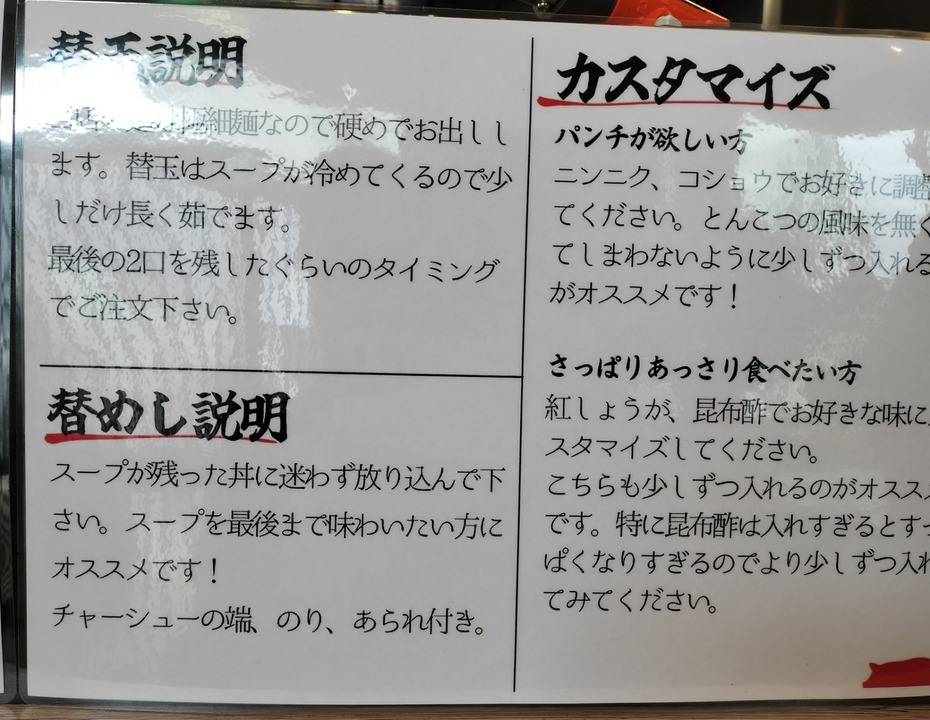 替玉説明
極細麺なので硬めでお出しし
ます。替玉はスープが冷めてくるので少
しだけ長く茹でます。
最後の2口を残したぐらいのタイミング
でご注文下さい。
替めし説明
スープが残った丼に迷わず放り込んで下
さい。スープを最後まで味わいたい方に
オススメです！
チャーシューの端、のり、あられ付き。
カスタマイズ
パンチが欲しい方
ニンニク、コショウでお好きに調整
てください。とんこつの風味を無く
てしまわないように少しずつ入れる
がオススメです！
さっぱりあっさり食べたい方
紅しょうが、昆布酢でお好きな味に
スタマイズしてください。
こちらも少しずつ入れるのがオスス
です。特に昆布酢は入れすぎるとすっ
ぱくなりすぎるのでより少しずつ入れ
てみてください。